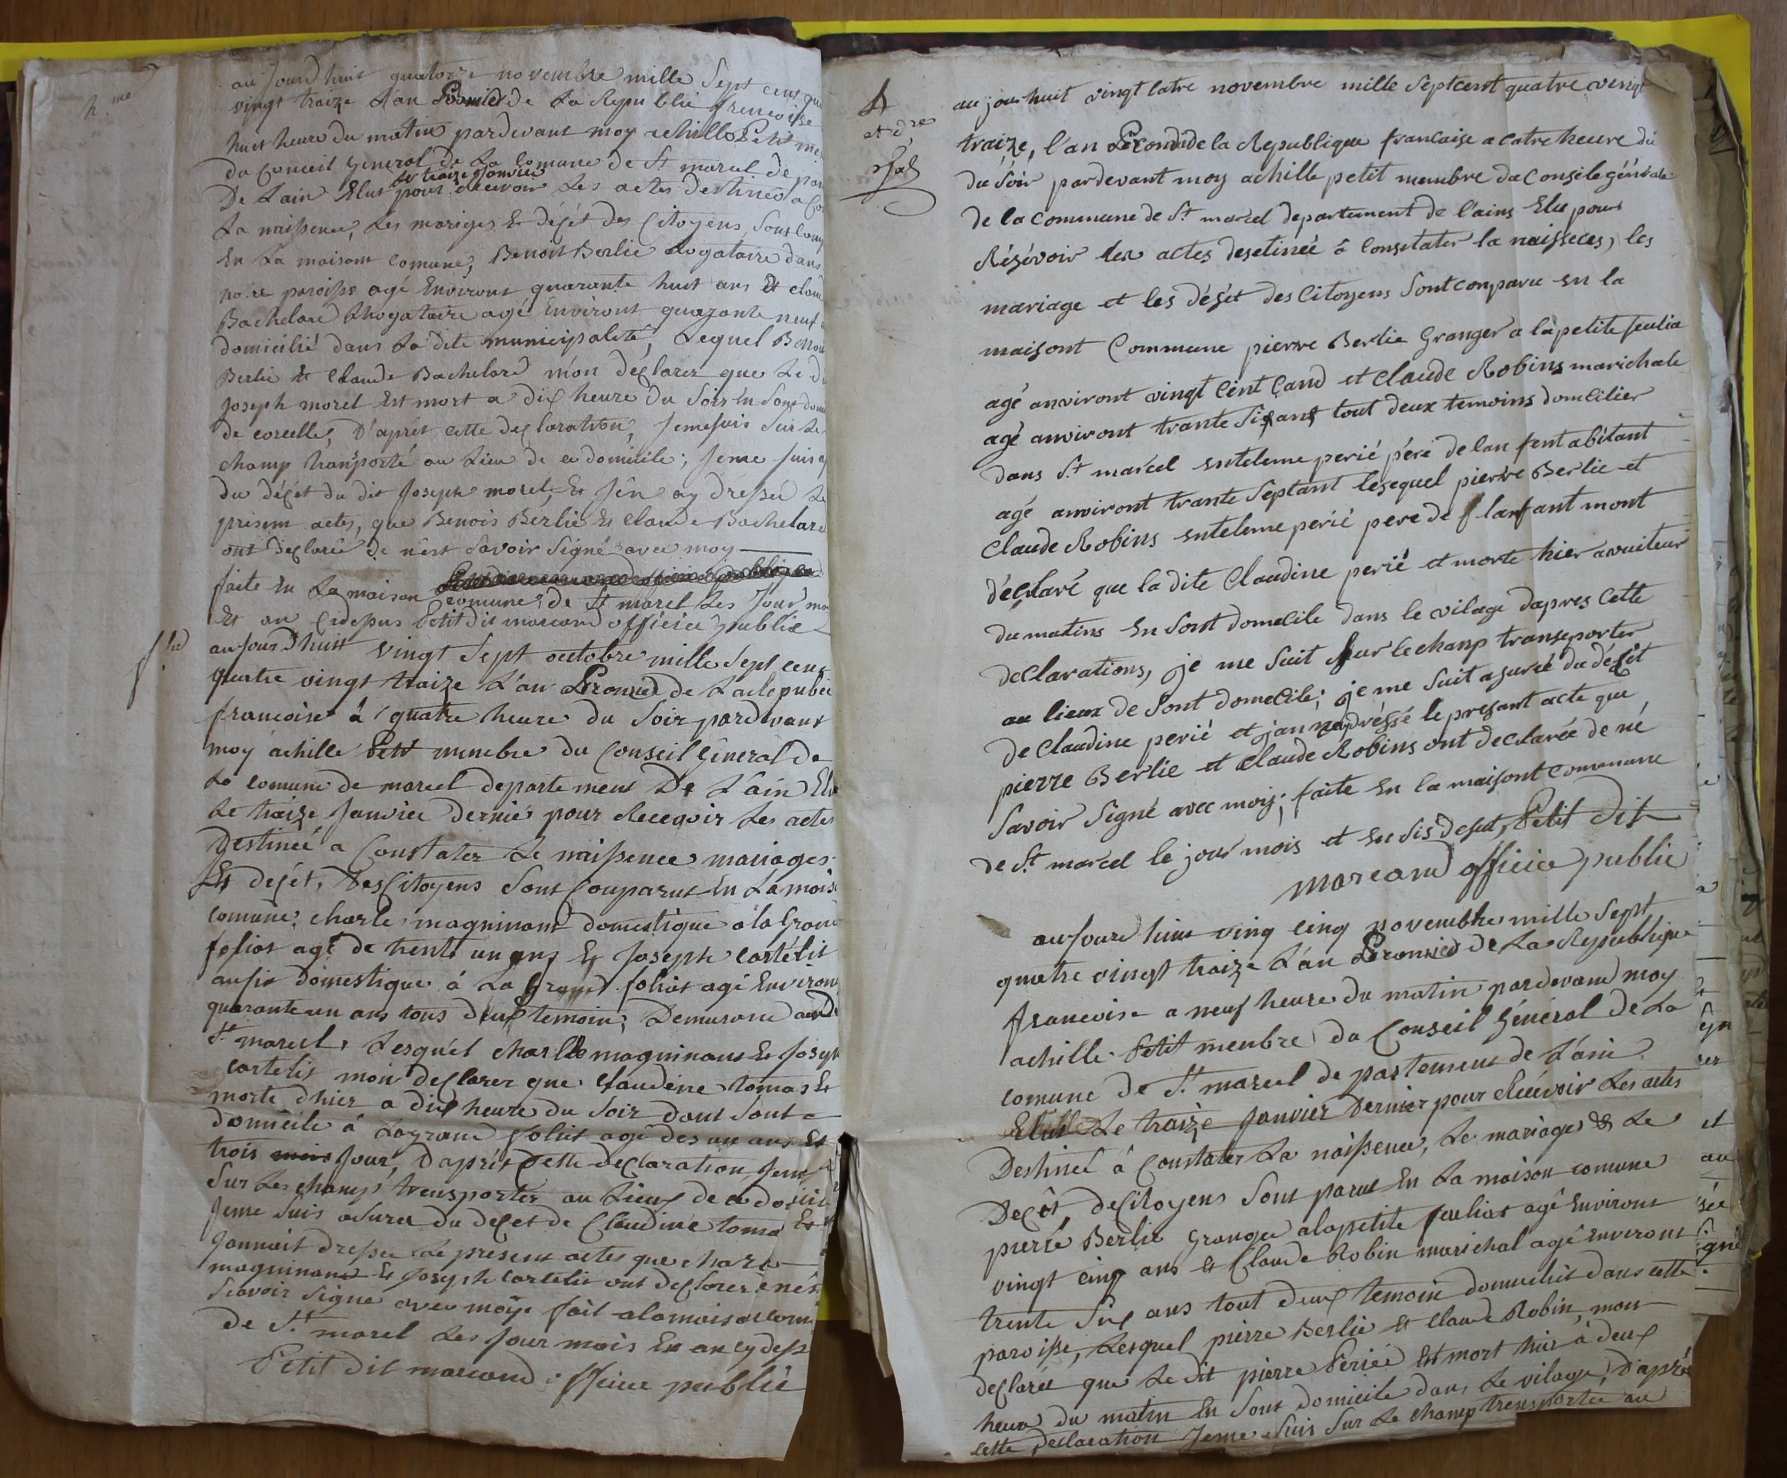 h.me
au Jourdhuit quatorze novembre mille Sept cens qua
vingt traize L'an Promied de La Republic francoise
huit heure du matin pardevant moy achille Petit me
du Conseil General de La Comune de St marcel de par
le traize Janvier
De Lain Elus pour recevoir Les actes destinés a Co
La naissence, Les mariges Et déçét des Citoyens Sont Comp
En La maisont comune, Benoit Berlie Rogataire dans
notre paroisse agé Environt quarante huit ans Et claude
Bachelard Rhogataire agé Environt quarante neuf
domicilié dans La dite municipalité, Lequel Benoi
Berlie Et Claude Bachelard m'on déclarer que Le di
Joseph morel Est mort a dix heure Du Soir En Sont domi
de corcelle, D'apret cette declaration, Jemesuis Sur Le
champ transporté au Lieu de ce domicile; Jeme suis a
du déçét du dit Joseph morel, Et Jén ay dressé Le
presem actes, que Benois Berlie Et Claude Bachelard
ont declarée de nést Savoir Signé avec moy
faite En La maison
comune de St marcel Les Jour moi
Et an Cidessus Petit dit marcand officier public
f.lle
au Jour D'huit vingt Sept octobre mille Sept cens
quatre vingt traize L'an Promied de La Republi
francoise à quatre heure du Soir pardevant
moy achille Petit membre du Conseil General de
La comune de marcel departement De L'ain Elu
Le traize Janvier Dernié pour Recevoir Les actes
Destinée a Constater Le naissence mariages
Et deçét, Des Citoyens Sont Comparut En La mois
comune, charle magninant domestique a la Grand
folias agé de trente un ans Et Joseph cartélit
aussi domestique á La Grand foliat agé Environ
quarante un ans tous deux temoin, Demurant au D
St marcel, Lesquél charlle magninant Et Josep
cartelit moin déclarer que Claudine tomas Et
morte d'hier a dix heure du Soir dant Sont
domicile á Lagrand foliet agé des un ans Et
trois mois Jour, D'aprés Cette declaration Jeme
Sur Les champ transporter au Lieux de ce domicile
Jeme Suis asurer du deçet de Claudine toma Et
Jannait dresser Le present actes que charle
magninant Et Joseph cartelit ont declarer e nés
Scavoir Signe avec moÿ fait alamaisoncom
De St marcel Les Jour mois En an cy dess
Petit dit marcand officier publié
A
et d.re
au jourhuit vingt catre novembre mille Septcent quatre vengt
traize, l'an Second de la Republique francaise a catre heure du
du Soir pardevant moy achille petit membre du Consile général
de la commune de St marcel departement de l'ains Elu pour
Résévoir les actes desetinéé à consetater la naisseces, les
mariage et les déçét des Citoyens Sont conparu En la
maisont Commune pierre Berlie Granger a la petite feulia
agé anviront vingt Cint Cand et Claude Robins marichale
agé anviront trante Sisans tout deux temoins domicilier
dans St marcel entéleme perié pére de lan fent abitant
agé anviront trante Septant lesequel pierre Berlie et
Claude Robins enteleme perié pere de lanfant mont
déclaré que la dite Claudine perié et morte hier avuiteur
du matins En Sont domecile dans le vilage dapres Cette
declarations, je me Suit Sur le champ transeporter
au lieux de Sont domecile; je me Suit asurée du déçét
de Claudine perié et jan nedréssé le presant acte que
pierre Berlie et Claude Robins ont declarée de né
Savoir Signé avec moiy; faite En la maisont Commune
de St marcel le jour mois et En Sis desut, Petit dit
marcand officier public
au Jourd huit ving cinq novembre mille Sept
quatre vingt traize L'an Promied de La Republique
francoise a neuf heure du matin pardevand moy
achille Petit menbre du Conseil Général de La
comune de St marcel de partement de L'ain
Elus Le traize Janvier Dernier pour Recevoir Les actes
Destineé à Constater La naissence, Le mariages & Le
Deçét de Citoyens Sont parut En La maison comune
pierre Berlie Granger alapetite feuliat agé Environt
vingt cinq ans Et Claude Robin marichal agé Environt
trente Six ans tout deux temoin domicilié dans cette
paroisse, Lesquel pierre Berlie Et Claude Robin, mon
declarée que Le dit pierre Périée Est mort hier à deux
heure du matin En Sont domicile dans Le vilage, D'aprés
cette declaration Jeme Suis Sur Le champ transportée au